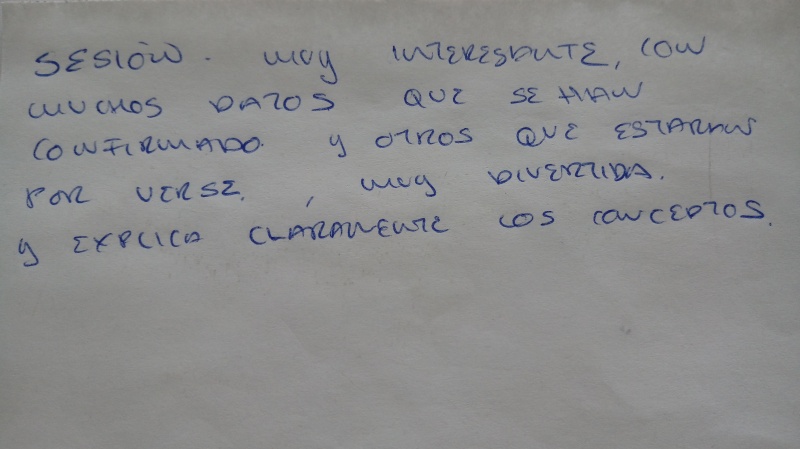 SESIÓN. MUY INTERESANTE, CON
MUCHOS DATOS QUE SE HAN
CONFIRMADO. Y OTROS QUE ESTARAN
POR VERSE. , MUY DIVERTIDA.
Y EXPLICA CLARAMENTE LOS CONCEPTOS.